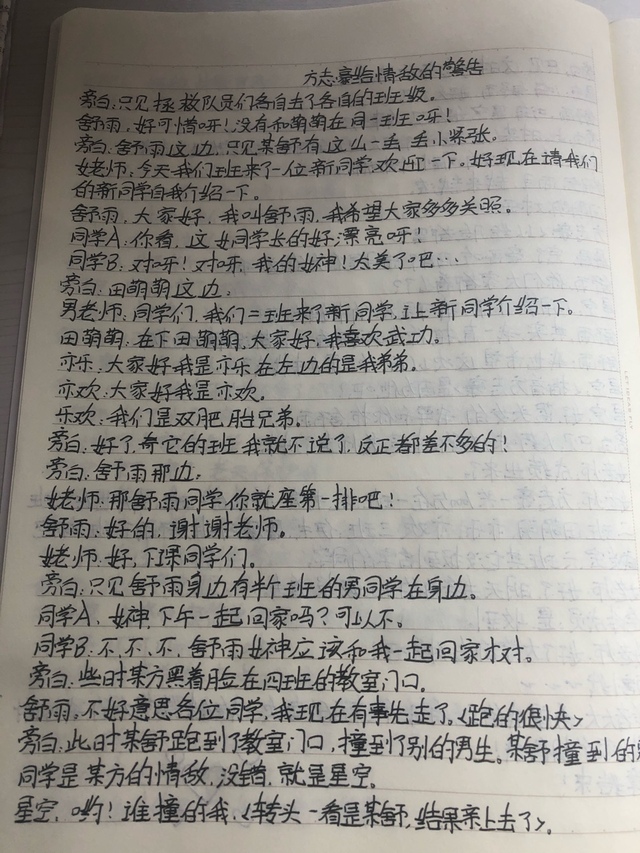 方志豪给情敌的警告
旁白:只见拯救队员们各自去了各自的班级。
舒雨,好可惜呀!没有和萌萌在同一班呀!
旁白:舒雨这边,只见某舒有这么一丢丢小紧张。
女老师:今天我们班来了一位新同学,欢迎一下。好现在请我们
的新同学自我介绍一下。
舒雨,大家好,我叫舒雨,我希望大家多多关照。
同学A:你看,这女同学长的好漂亮呀!
同学B:对呀!对呀,我的女神!太美了吧…
旁白:田萌萌这边,
男老师:同学们,我们二班来了新同学,让新同学介绍一下。
田萌萌,在下田萌萌,大家好,我喜欢武功。
亦乐:大家好我是亦乐在左边的是我弟弟。
亦欢:大家好我是亦欢。
乐欢:我们是双肥胎兄弟。
旁白:好了,奇它的班我就不说了,反正都差不多的!
旁白:舒雨那边,
女老师:那舒雨同学你就座第一排吧!
舒雨:好的,谢谢老师。
女老师:好,下课同学们。
旁白:只见舒雨身边有半个班的男同学在身边。
同学A,女神,下午一起回家吗?可以不。
同学B:不,不,不,舒雨女神应该和我一起回家才对。
旁白:些时某方黑着脸在四班的教室门口。
舒雨:不好意思各位同学,我现在有事先走了,<跑的很快>
旁白:此时某舒跑到了教室门口,撞到了别的男生。某舒撞到的
同学是某方的情敌,没错,就是星空。
星空,哟!谁撞的我,<转头一看是某舒,结果亲上去了>。